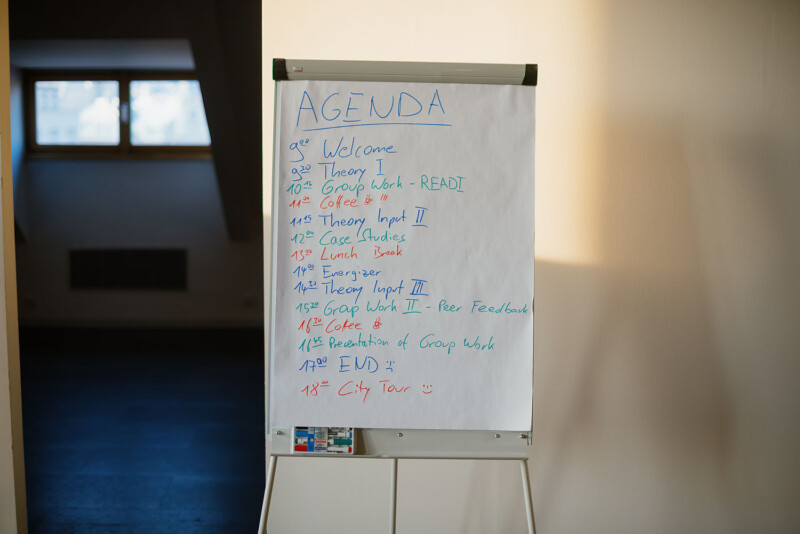 AGENDA
9⁰⁰ Welcome
9³⁰ Theory I
10¹⁵ Group Work - READI
11³⁰ Coffee !!!
11⁴⁵ Theory Input II
12⁰⁰ Case Studies
13⁰⁰ Lunch Break
14⁰⁰ Energizer
14³⁰ Theory Input III
15²⁰ Group Work II - Peer Feedback
16³⁰ Coffee
16⁴⁵ Presentation of Group Work
17⁰⁰ END :(
18⁰⁰ City Tour :)